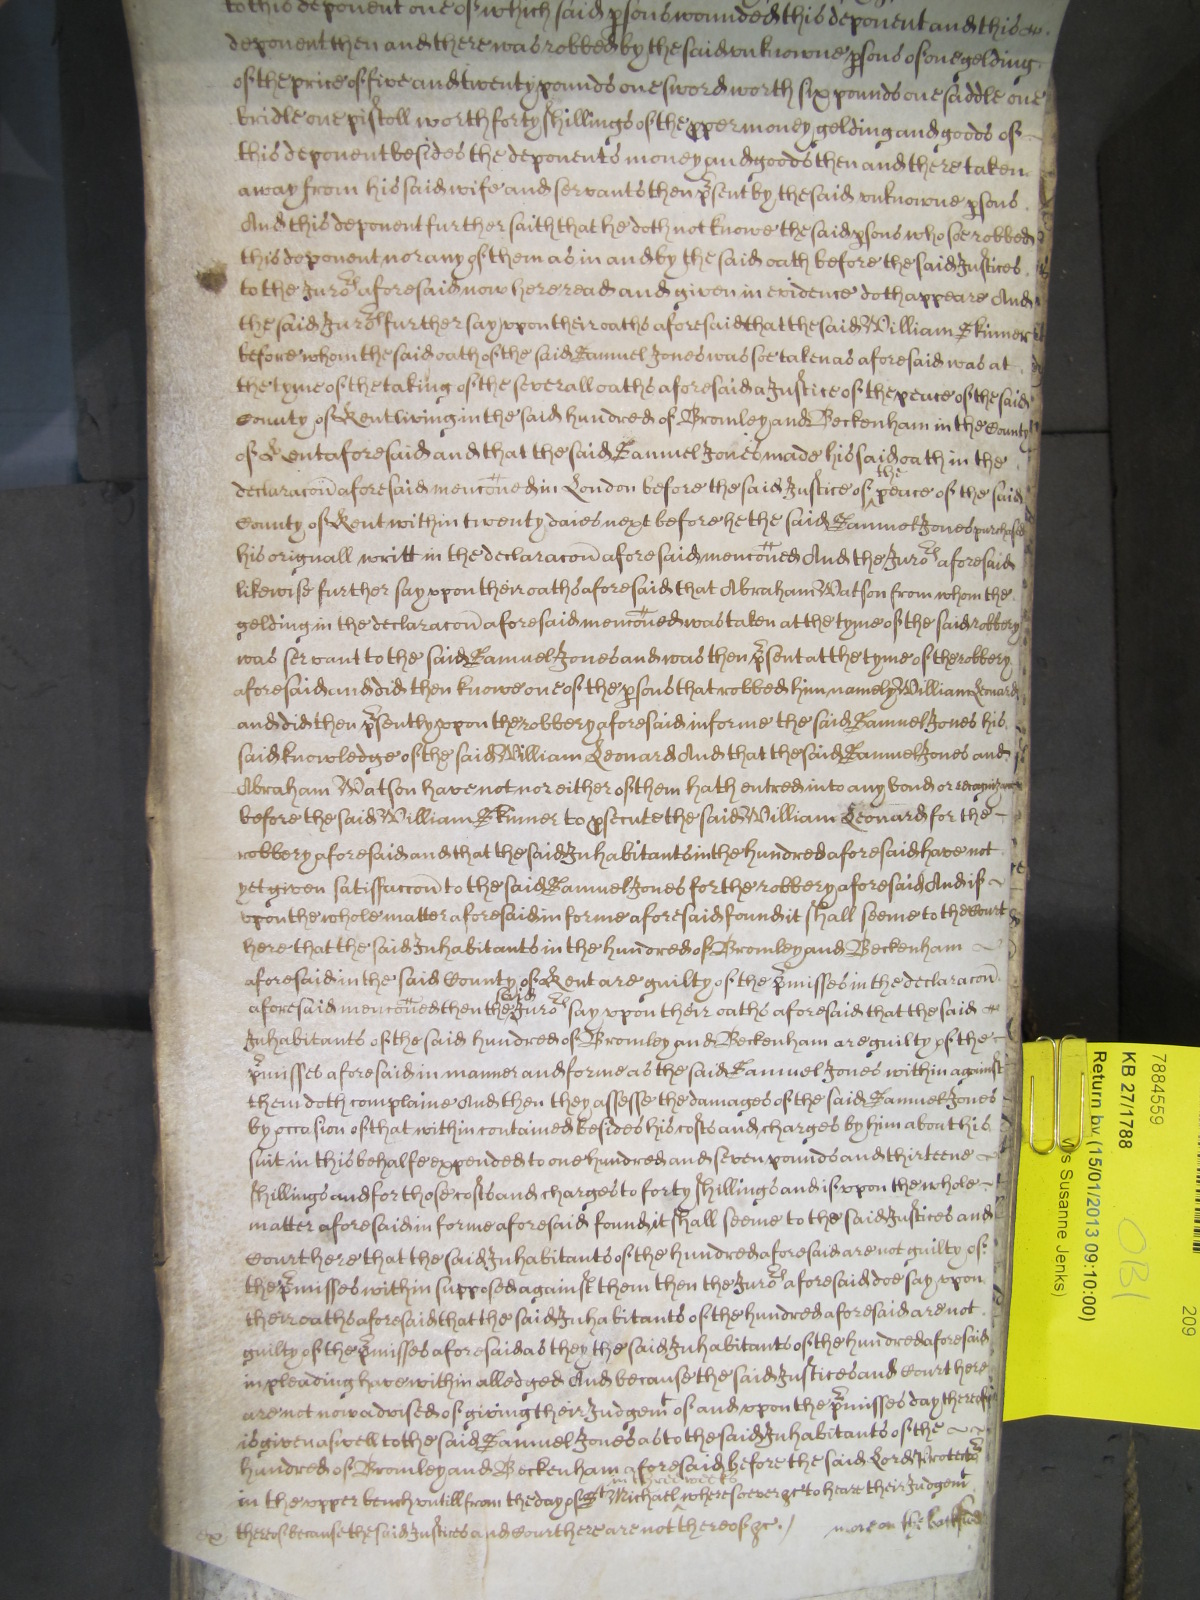 to this deponent one of which said psons wounded this deponent and this
deponent then and there was robbed by the said unknowne psons of one gelding
of the price of five and twenty pounds one sword worth six pounds one saddle one
bridle one pistoll worth forty shillings of the pper money gelding and goods of
this deponent besides the deponents money and goods then and there taken
away from his said wife and servants then psent by the said unknowne psons
And this deponent further saith that he doth not knowe the said psons who soe robbed
this deponent nor any of them as in and by the said oath before the said Justices
to the Juro^rs aforesaid now here read and given in evidence doth appeare And
the said Juro^rs further say upon their oaths aforesaid that the said William Skinner
before whom the said oath of the said Samuel Jones was soe taken as aforesaid was at
the tyme of the taking of the severall oaths aforesaid a Justice of the peace of the said
County of Kent living in the said hundred of Bromley and Beckenham in the County
of Kent aforesaid and that the said Samuel Jones made his said oath in the
declaracon aforesaid menconed in London before the said Justice of the peace of the said
County of Kent within twenty daies next before he the said Samuel Jones purchased
his originall writt in the declaracon aforesaid menconed And the Juro^rs aforesaid
likewise further say upon their oaths aforesaid that Abraham Watson from whom the
gelding in the declaracon aforesaid menconed was taken at the tyme of the said robbery
was servant to the said Samuel Jones and was then psent at the tyme of the robbery
aforesaid and did then knowe one of the psons that robbed him namely William Leonard
and did then psently upon the robbery aforesaid informe the said Samuel Jones his
said knowledge of the said William Leonard And that the said Samuel Jones and
Abraham Watson have not nor either of them hath entred into any bond or recognizance
before the said William Skinner to psecute the said William Leonard for the
robbery aforesaid and that the said Inhabitants in the hundred aforesaid have not
yet given satisfaccon to the said Samuel Jones for the robbery aforesaid And if
upon the whole matter aforesaid in forme aforesaid found it shall seeme to the Court
here that the said Inhabitants in the hundred of Bromley and Beckenham
aforesaid in the said County of Kent are guilty of the pmisses in the declaracon
aforesaid menconed then the said Juro^rs say upon their oaths aforesaid that the said
Inhabitants of the said hundred of Bromley and Beckenham are guilty of the
pmisses aforesaid in manner and forme as the said Samuel Jones within against
them doth complaine And then they assesse the damages of the said Samuel Jones
by occasion of that within contained besides his costs and charges by him about this
suit in this behalfe expended to one hundred and seven pounds and thirteene
shillings and for those costs and charges to forty shillings and if upon the whole
matter aforesaid in forme aforesaid found it shall seeme to the said Justices and
Court here that the said Inhabitants of the hundred aforesaid are not guilty of
the pmisses within supposed against them then the Juro^rs aforesaid doe say upon
their oaths aforesaid that the said Inhabitants of the hundred aforesaid are not
guilty of the pmisses aforesaid as they the said Inhabitants of the hundred aforesaid
in pleading have within alledged And because the said Justices and Court here
are not now advised of giving their Judgem^t of and upon the pmisses day thereof
is given aswell to the said Samuel Jones as to the said Inhabitants of the
hundred of Bromley and Beckenham aforesaid before the said Lord Protector
in the upper bench untill from the day of S^t Michael in three weeks wheresoever &c to heare their Judgem^t
thereof because the said Justices and Court here are not thereof &c.
more on the backside
ex
7884559
KB 27/1788
Return by (15/01/2013 09:10:00)
s Susanne Jenks)
OBI
209